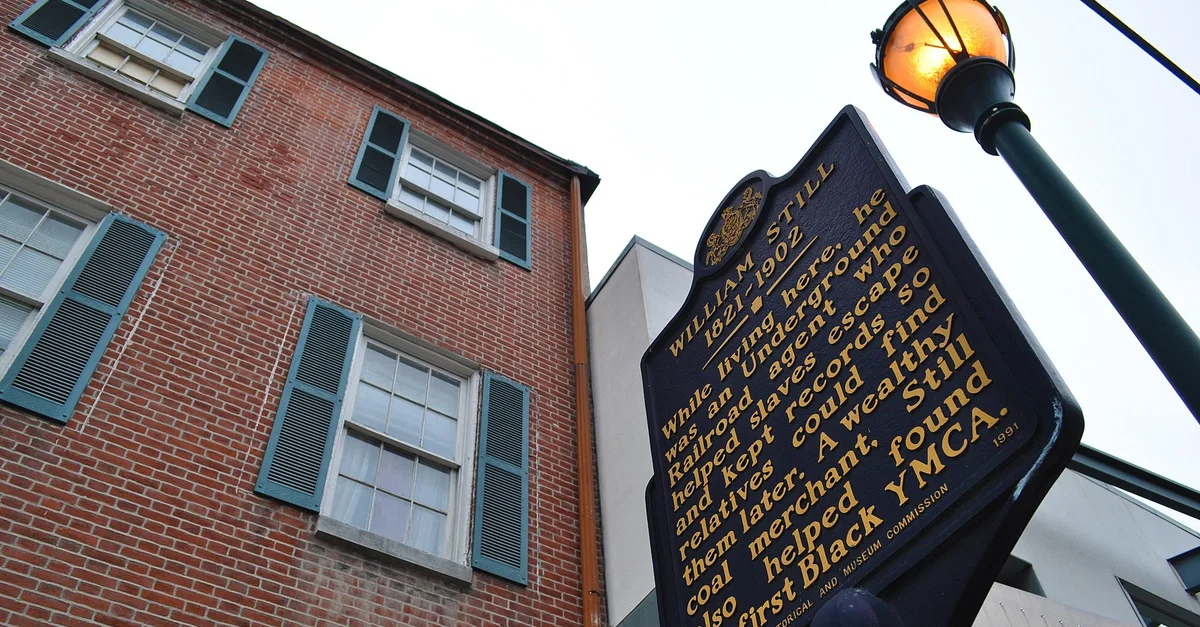 WILLIAM STILL
1821-1902
While living here, he
was an Underground
Railroad agent who
helped slaves escape
and kept records so
relatives could find
them later. A wealthy
coal merchant, Still
also helped found
first Black YMCA.
AND MUSEUM COMMISSION 1991